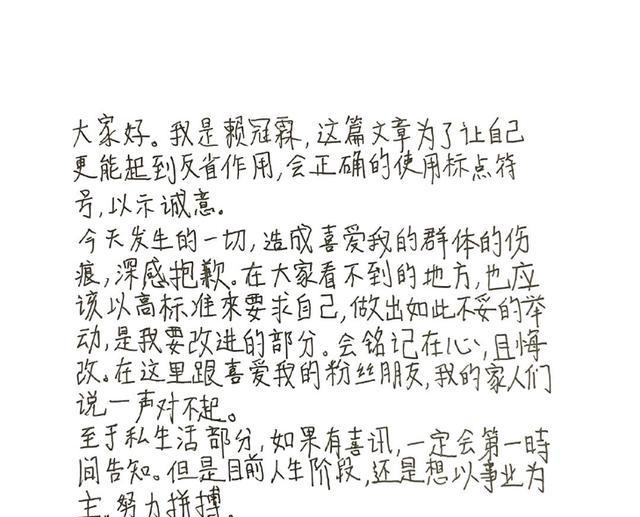 大家好。我是赖冠霖,这篇文章为了让自己
更能起到反省作用,会正确的使用标点符
号,以示诚意。
今天发生的一切,造成喜爱我的群体的伤
痕,深感抱歉。在大家看不到的地方,也应
该以高标准來要求自己,做出如此不妥的举
动,是我要改进的部分。会铭记在心,且悔
改。在这里跟喜爱我的粉丝朋友,我的家人们
说一声对不起。
至于私生活部分,如果有喜讯,一定会第一時
间告知。但是目前人生阶段,还是想以事业为
主,努力拼搏。